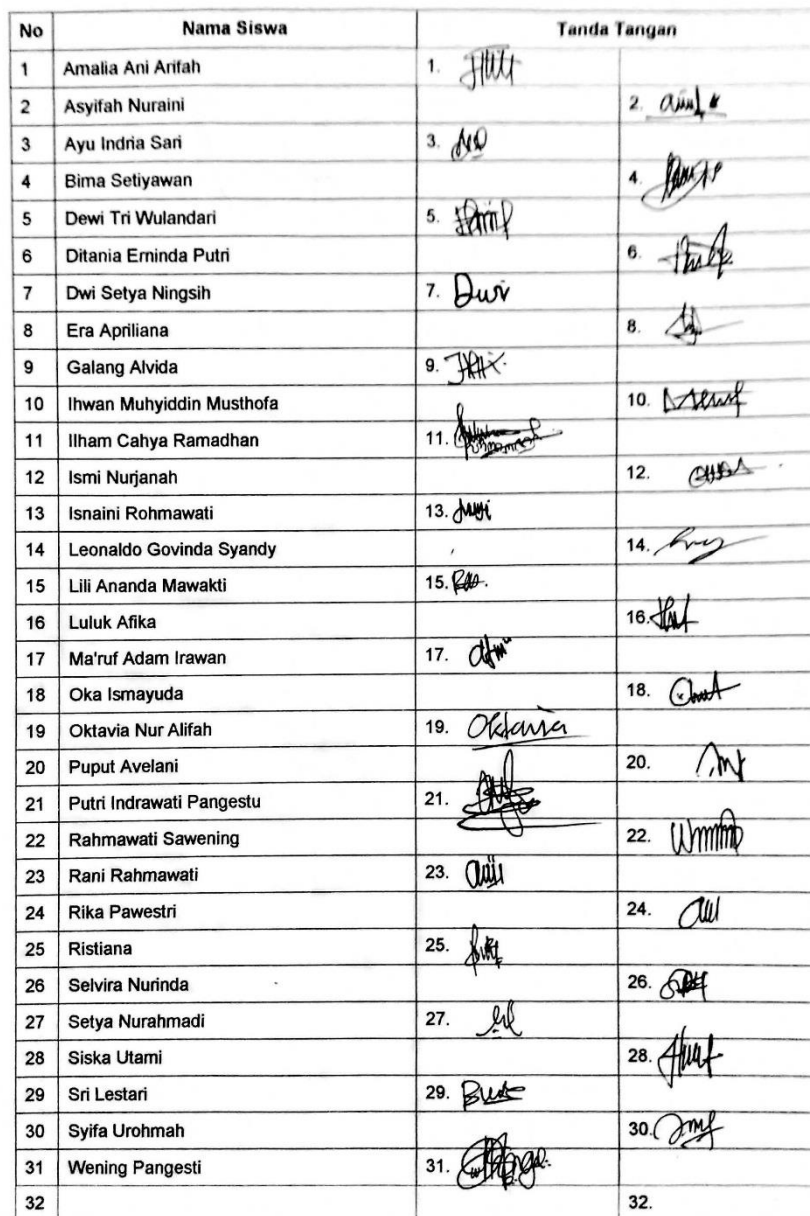 No Nama Siswa Tanda Tangan
1 Amalia Ani Arifah 1.
2 Asyifah Nuraini 2.
3 Ayu Indria Sari 3.
4 Bima Setiyawan 4.
5 Dewi Tri Wulandari 5.
6 Ditania Erninda Putri 6.
7 Dwi Setya Ningsih 7. Dwi
8 Era Apriliana 8.
9 Galang Alvida 9.
10 Ihwan Muhyiddin Musthofa 10.
11 Ilham Cahya Ramadhan 11.
12 Ismi Nurjanah 12.
13 Isnaini Rohmawati 13.
14 Leonaldo Govinda Syandy 14.
15 Lili Ananda Mawakti 15.
16 Luluk Afika 16.
17 Ma'ruf Adam Irawan 17.
18 Oka Ismayuda 18.
19 Oktavia Nur Alifah 19. Oktavia
20 Puput Avelani 20.
21 Putri Indrawati Pangestu 21.
22 Rahmawati Sawening 22.
23 Rani Rahmawati 23.
24 Rika Pawestri 24.
25 Ristiana 25.
26 Selvira Nurinda 26.
27 Setya Nurahmadi 27.
28 Siska Utami 28.
29 Sri Lestari 29.
30 Syifa Urohmah 30.
31 Wening Pangesti 31.
32 32.